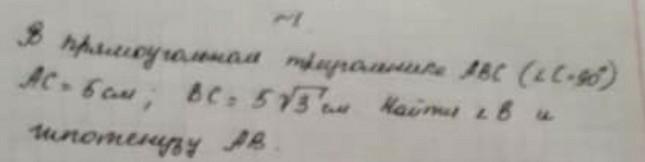 ~1.
В прямоугольном треугольнике ABC (∠C=90°)
AC = 5 см; BC = 5√3 см Найти ∠B и
гипотенузу AB.